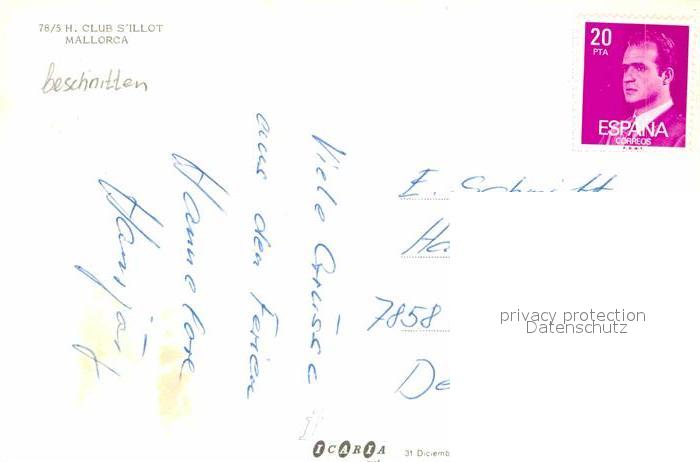 78/5 H. CLUB S'ILLOT
MALLORCA
beschnitten
20
PTA
ESPAÑA
CORREOS
Viele Grüsse
aus den Ferien
Hannelore
E. Schmitt
Ha
7858
De
privacy protection
Datenschutz
ICARIA
31 Diciemb